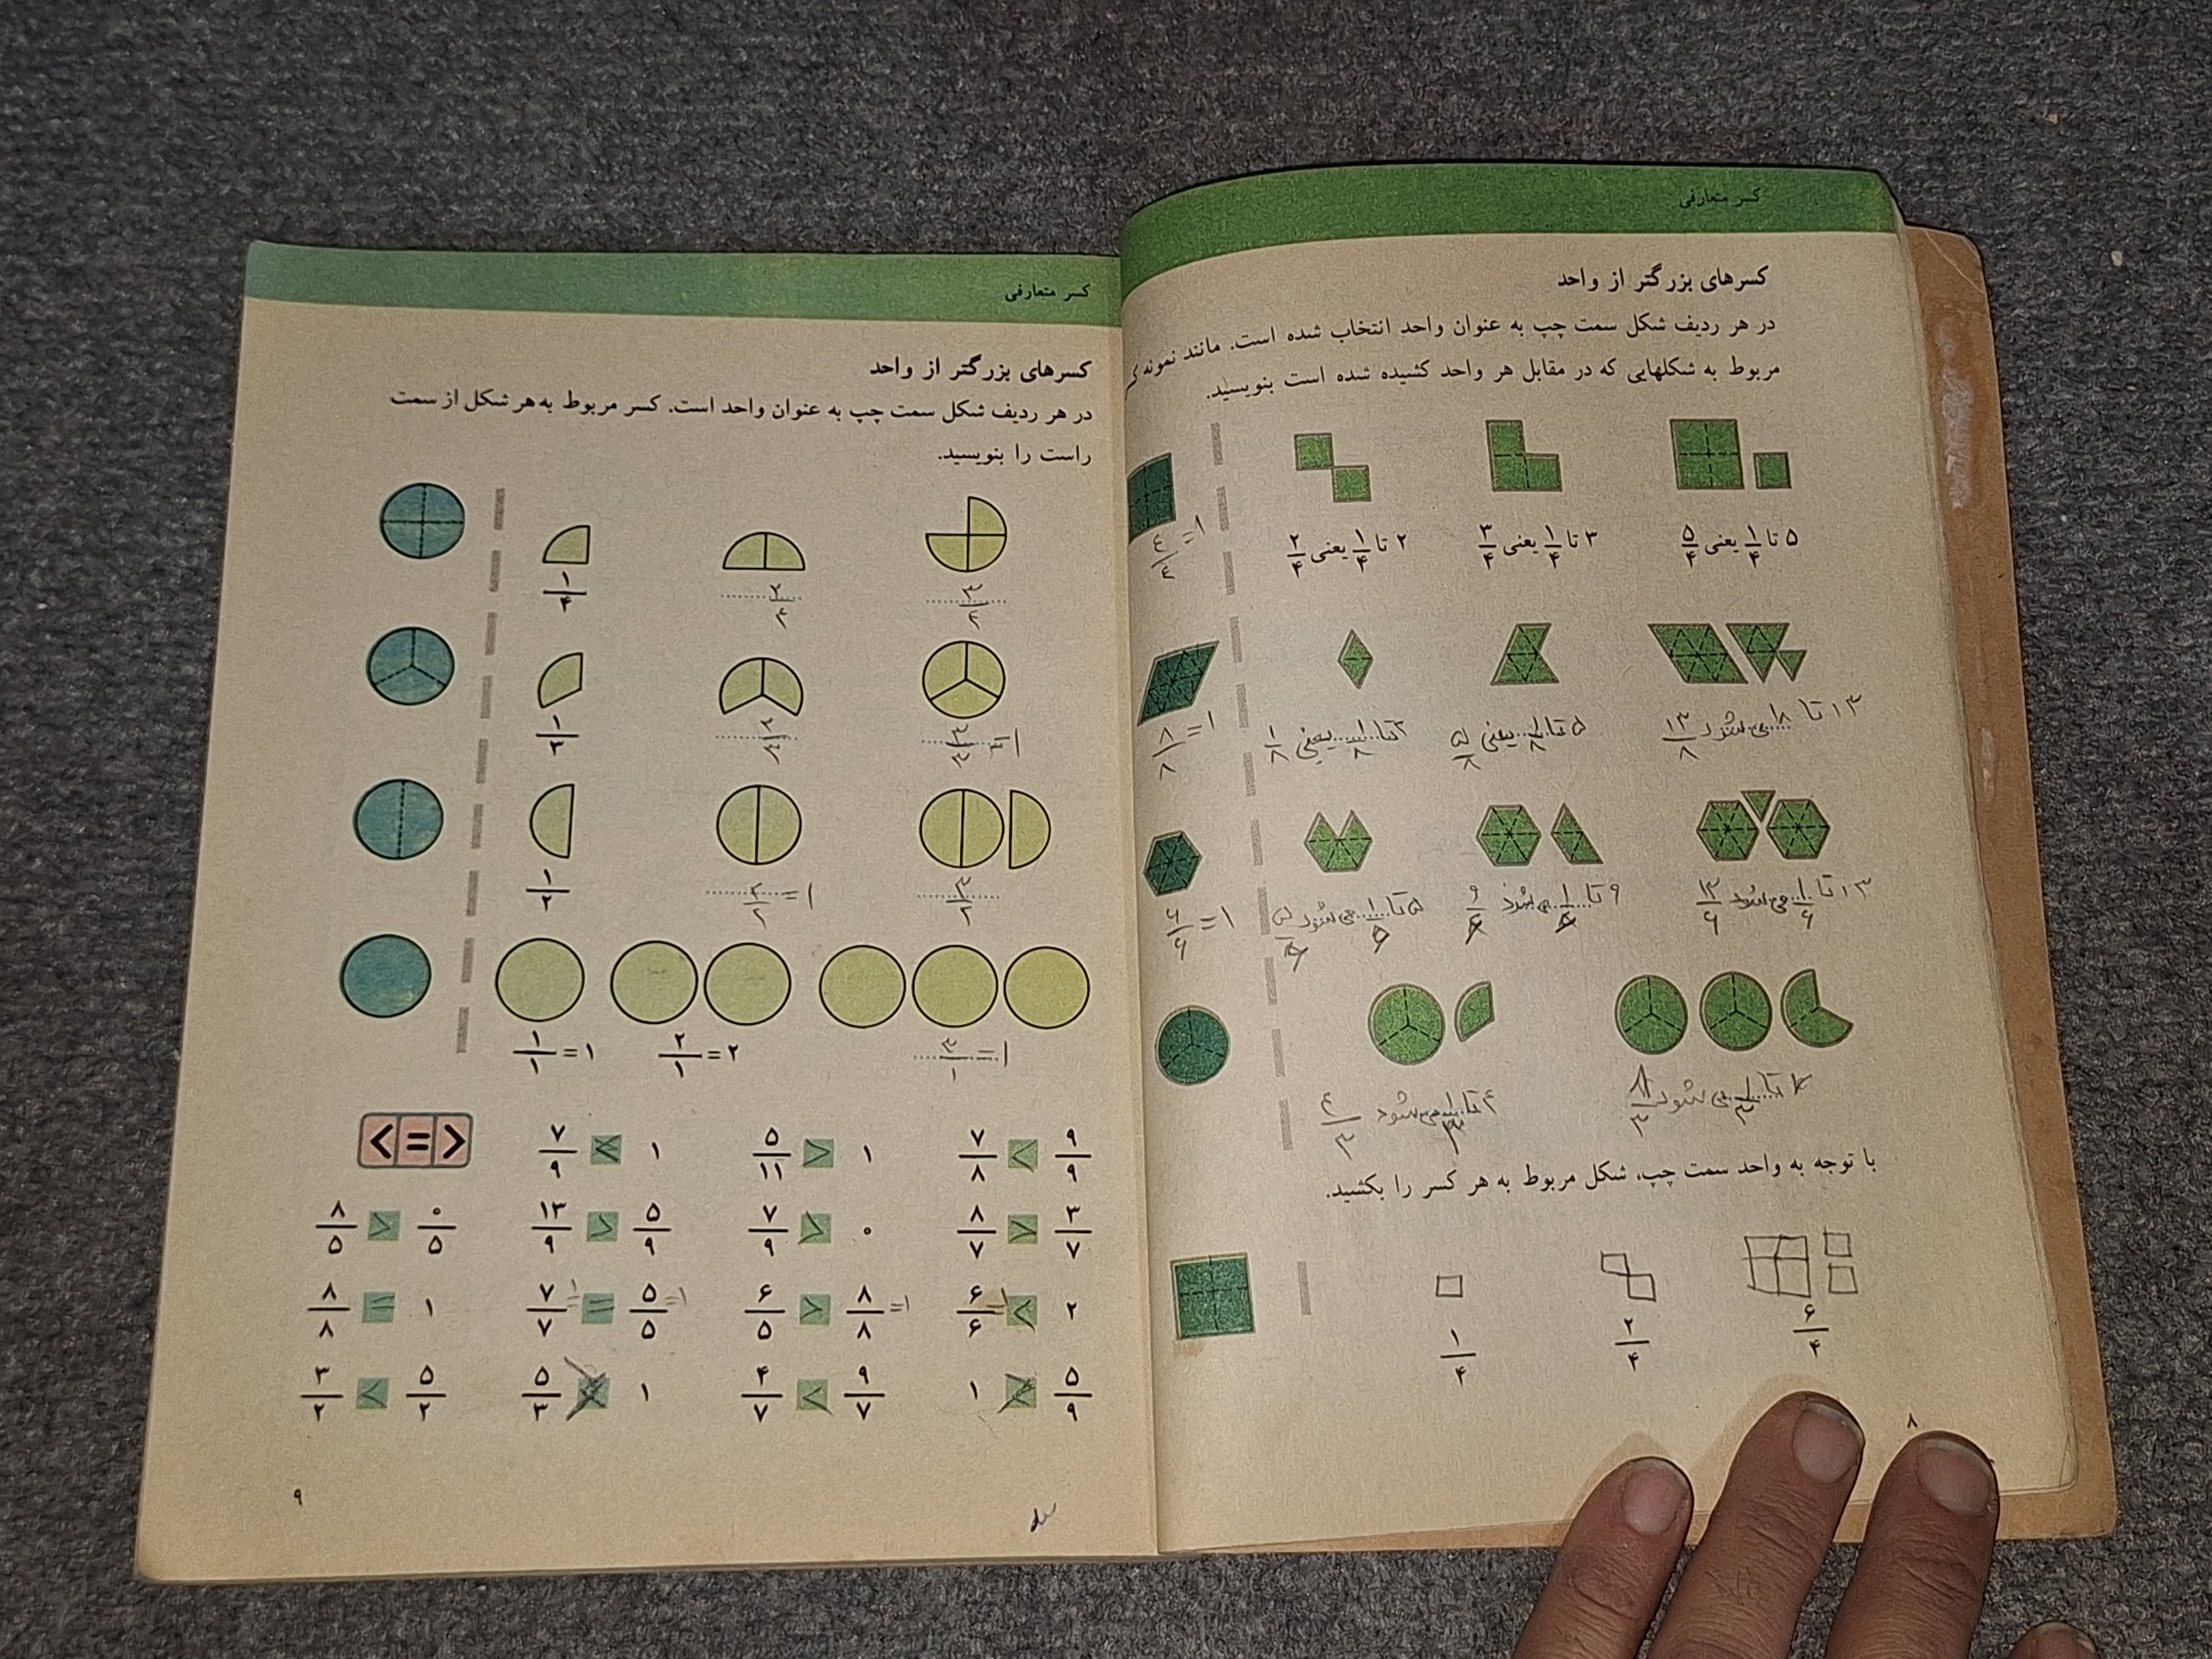 کسر متعارفی
کسرهای بزرگتر از واحد
در هر ردیف شکل سمت چپ به عنوان واحد انتخاب شده است. مانند نمونه
مربوط به شکلهایی که در مقابل هر واحد کشیده شده است بنویسید.
۵ تا ۱/۴ یعنی ۵/۴ ۳ تا ۱/۴ یعنی ۳/۴ ۲ تا ۱/۴ یعنی ۲/۴ ۴/۴ = ۱
۱۳ تا ۱/۸ می‌شود ۱۳/۸ ۵ تا ۱/۸ یعنی ۵/۸ تا ۱/۸ یعنی ۱/۸ ۸/۸ = ۱
۱۳ تا ۱/۶ می‌شود ۱۳/۶ ۹ تا ۱/۶ می‌شود ۹/۶ ۵ تا ۱/۶ می‌شود ۵/۶ ۶/۶ = ۱
تا ۱/۳ می‌شود ۸/۳ ۴ تا ۱/۳ می‌شود ۴/۳
با توجه به واحد سمت چپ، شکل مربوط به هر کسر را بکشید.
۶/۴ ۲/۴ ۱/۴
۸
کسر متعارفی
کسرهای بزرگتر از واحد
در هر ردیف شکل سمت چپ به عنوان واحد است. کسر مربوط به هر شکل از سمت
راست را بنویسید.
۱/۴ ۲/۴ ۳/۴
۱/۳ ۲/۳ ۳/۳ = ۱
۱/۲ ۲/۲ = ۱ ۳/۲
۱/۱ = ۱ ۲/۱ = ۲ ۳/۱ = ۱
< = > ۷/۹ < ۱ ۵/۱۱ > ۱ ۷/۸ < ۹/۹
۸/۵ > ۰/۵ ۱۳/۹ > ۵/۹ ۷/۹ > ۰ ۸/۷ > ۳/۷
۸/۸ = ۱ ۷/۷ = ۱ = ۵/۵ = ۱ ۶/۵ > ۸/۸ = ۱ ۶/۶ = ۱ < ۲
۳/۲ < ۵/۲ ۵/۳ ۱ ۴/۷ < ۹/۷ ۱ ۵/۹
۹